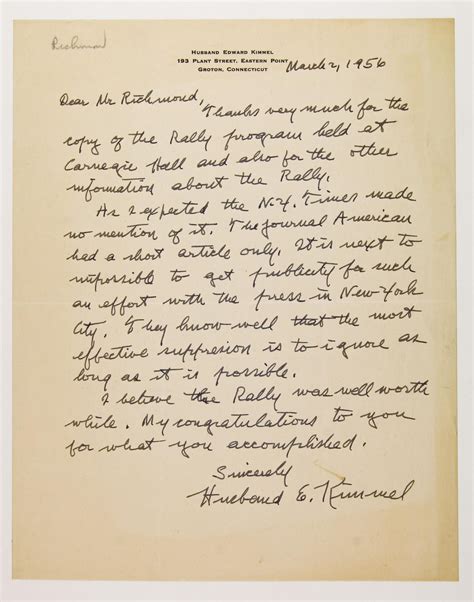 Richmond
HUSBAND EDWARD KIMMEL
193 PLANT STREET, EASTERN POINT
GROTON, CONNECTICUT
March 2, 1956
Dear Mr Richmond,
Thanks very much for the
copy of the Rally program held at
Carnegie Hall and also for the other
information about the Rally.
As I expected the N.Y. Times made
no mention of it. The Journal American
had a short article only. It is next to
impossible to get publicity for such
an effort with the press in New York
City. They know well that the most
effective suppresion is to ignore as
long as it is possible.
I believe the Rally was well worth
while. My congratulations to you
for what you accomplished.
Sincerely
Husband E. Kimmel